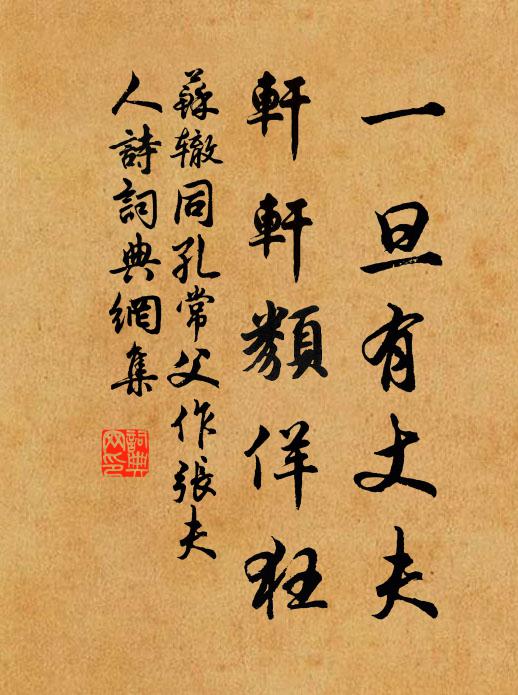 一旦有丈夫
軒軒類佯狂
蘇辙同孔常父作張夫
人詩詞典網集
詞典网印